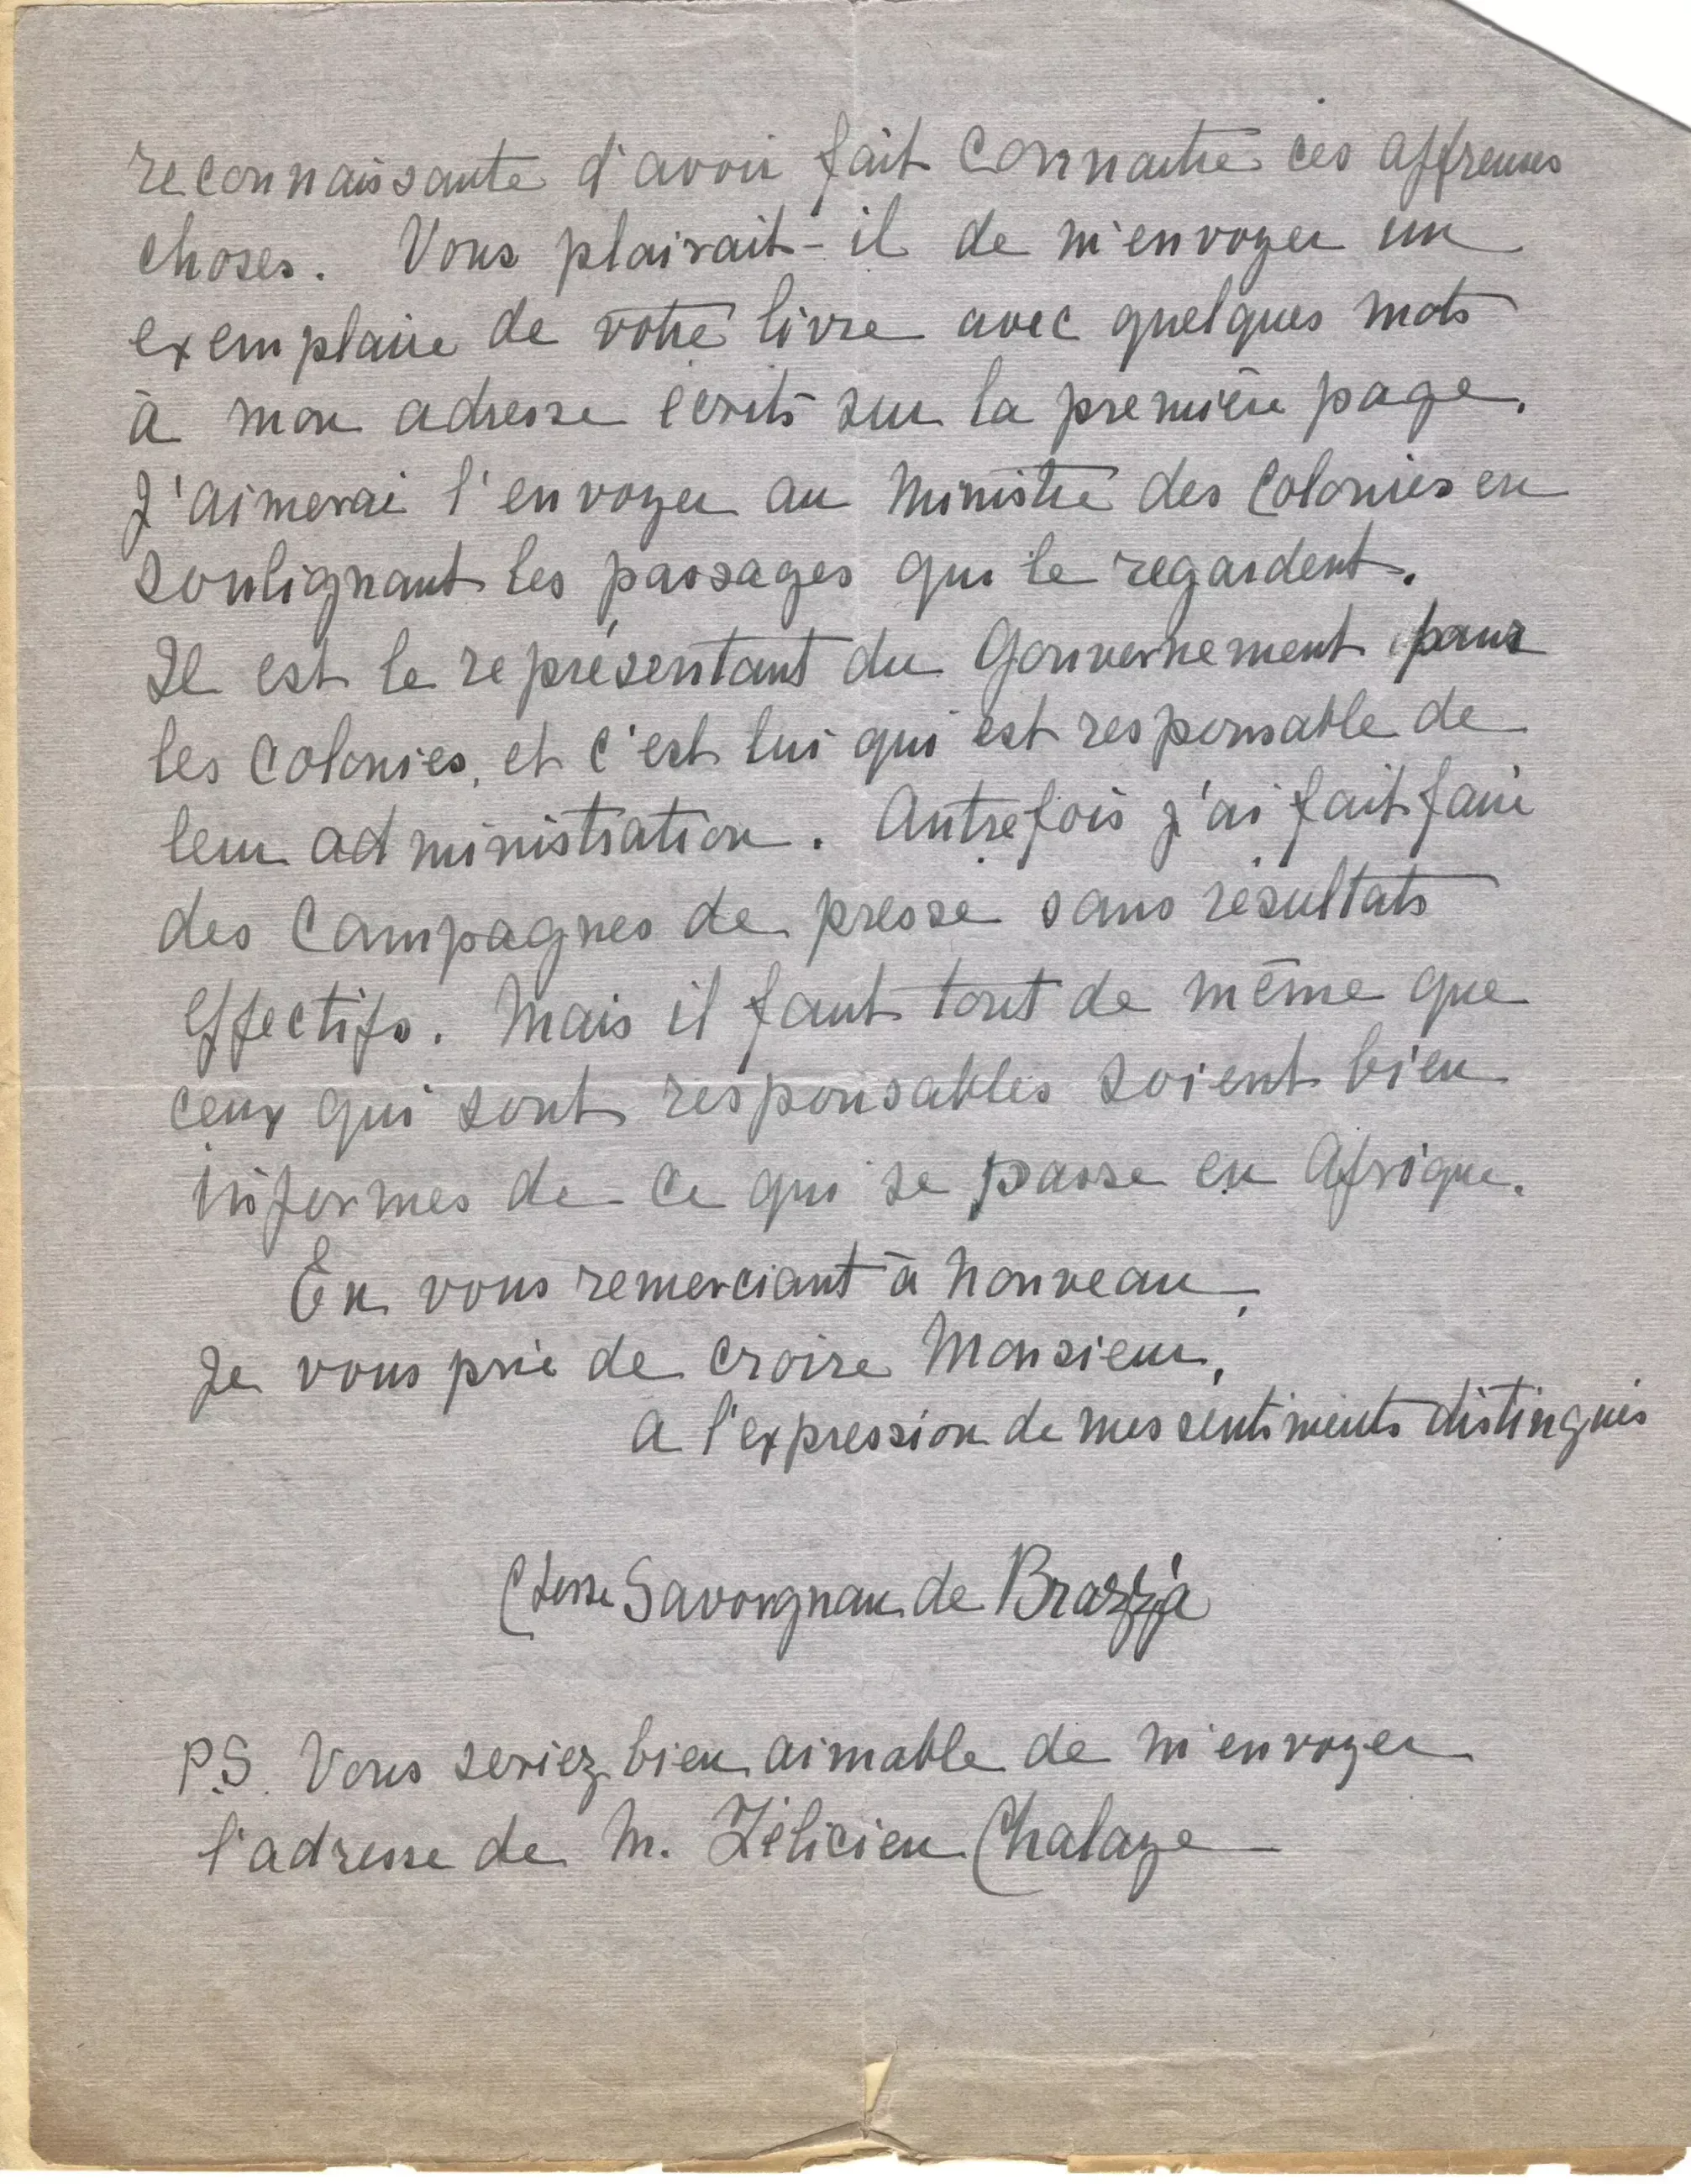 reconnaissante d'avoir fait connaitre ces affreuses
choses. Vous plairait-il de m'envoyer un
exemplaire de votre livre avec quelques mots
à mon adresse écrits sur la première page.
J'aimerai l'envoyer au Ministre des Colonies en
soulignant les passages qui le regardent.
Il est le représentant du Gouvernement pour
les Colonies, et c'est lui qui est responsable de
leur administration. Autrefois j'ai fait faire
des Campagnes de presse sans résultats
effectifs. Mais il faut tout de même que
ceux qui sont responsables soient bien
informes de ce qui se passe en Afrique.
En vous remerciant à nouveau,
Je vous prie de croire Monsieur,
a l'expression de mes sentiments distingués
Ctesse Savorgnan de Brazzà
P.S. Vous seriez bien aimable de m'envoyer
l'adresse de M. Félicien Challaye